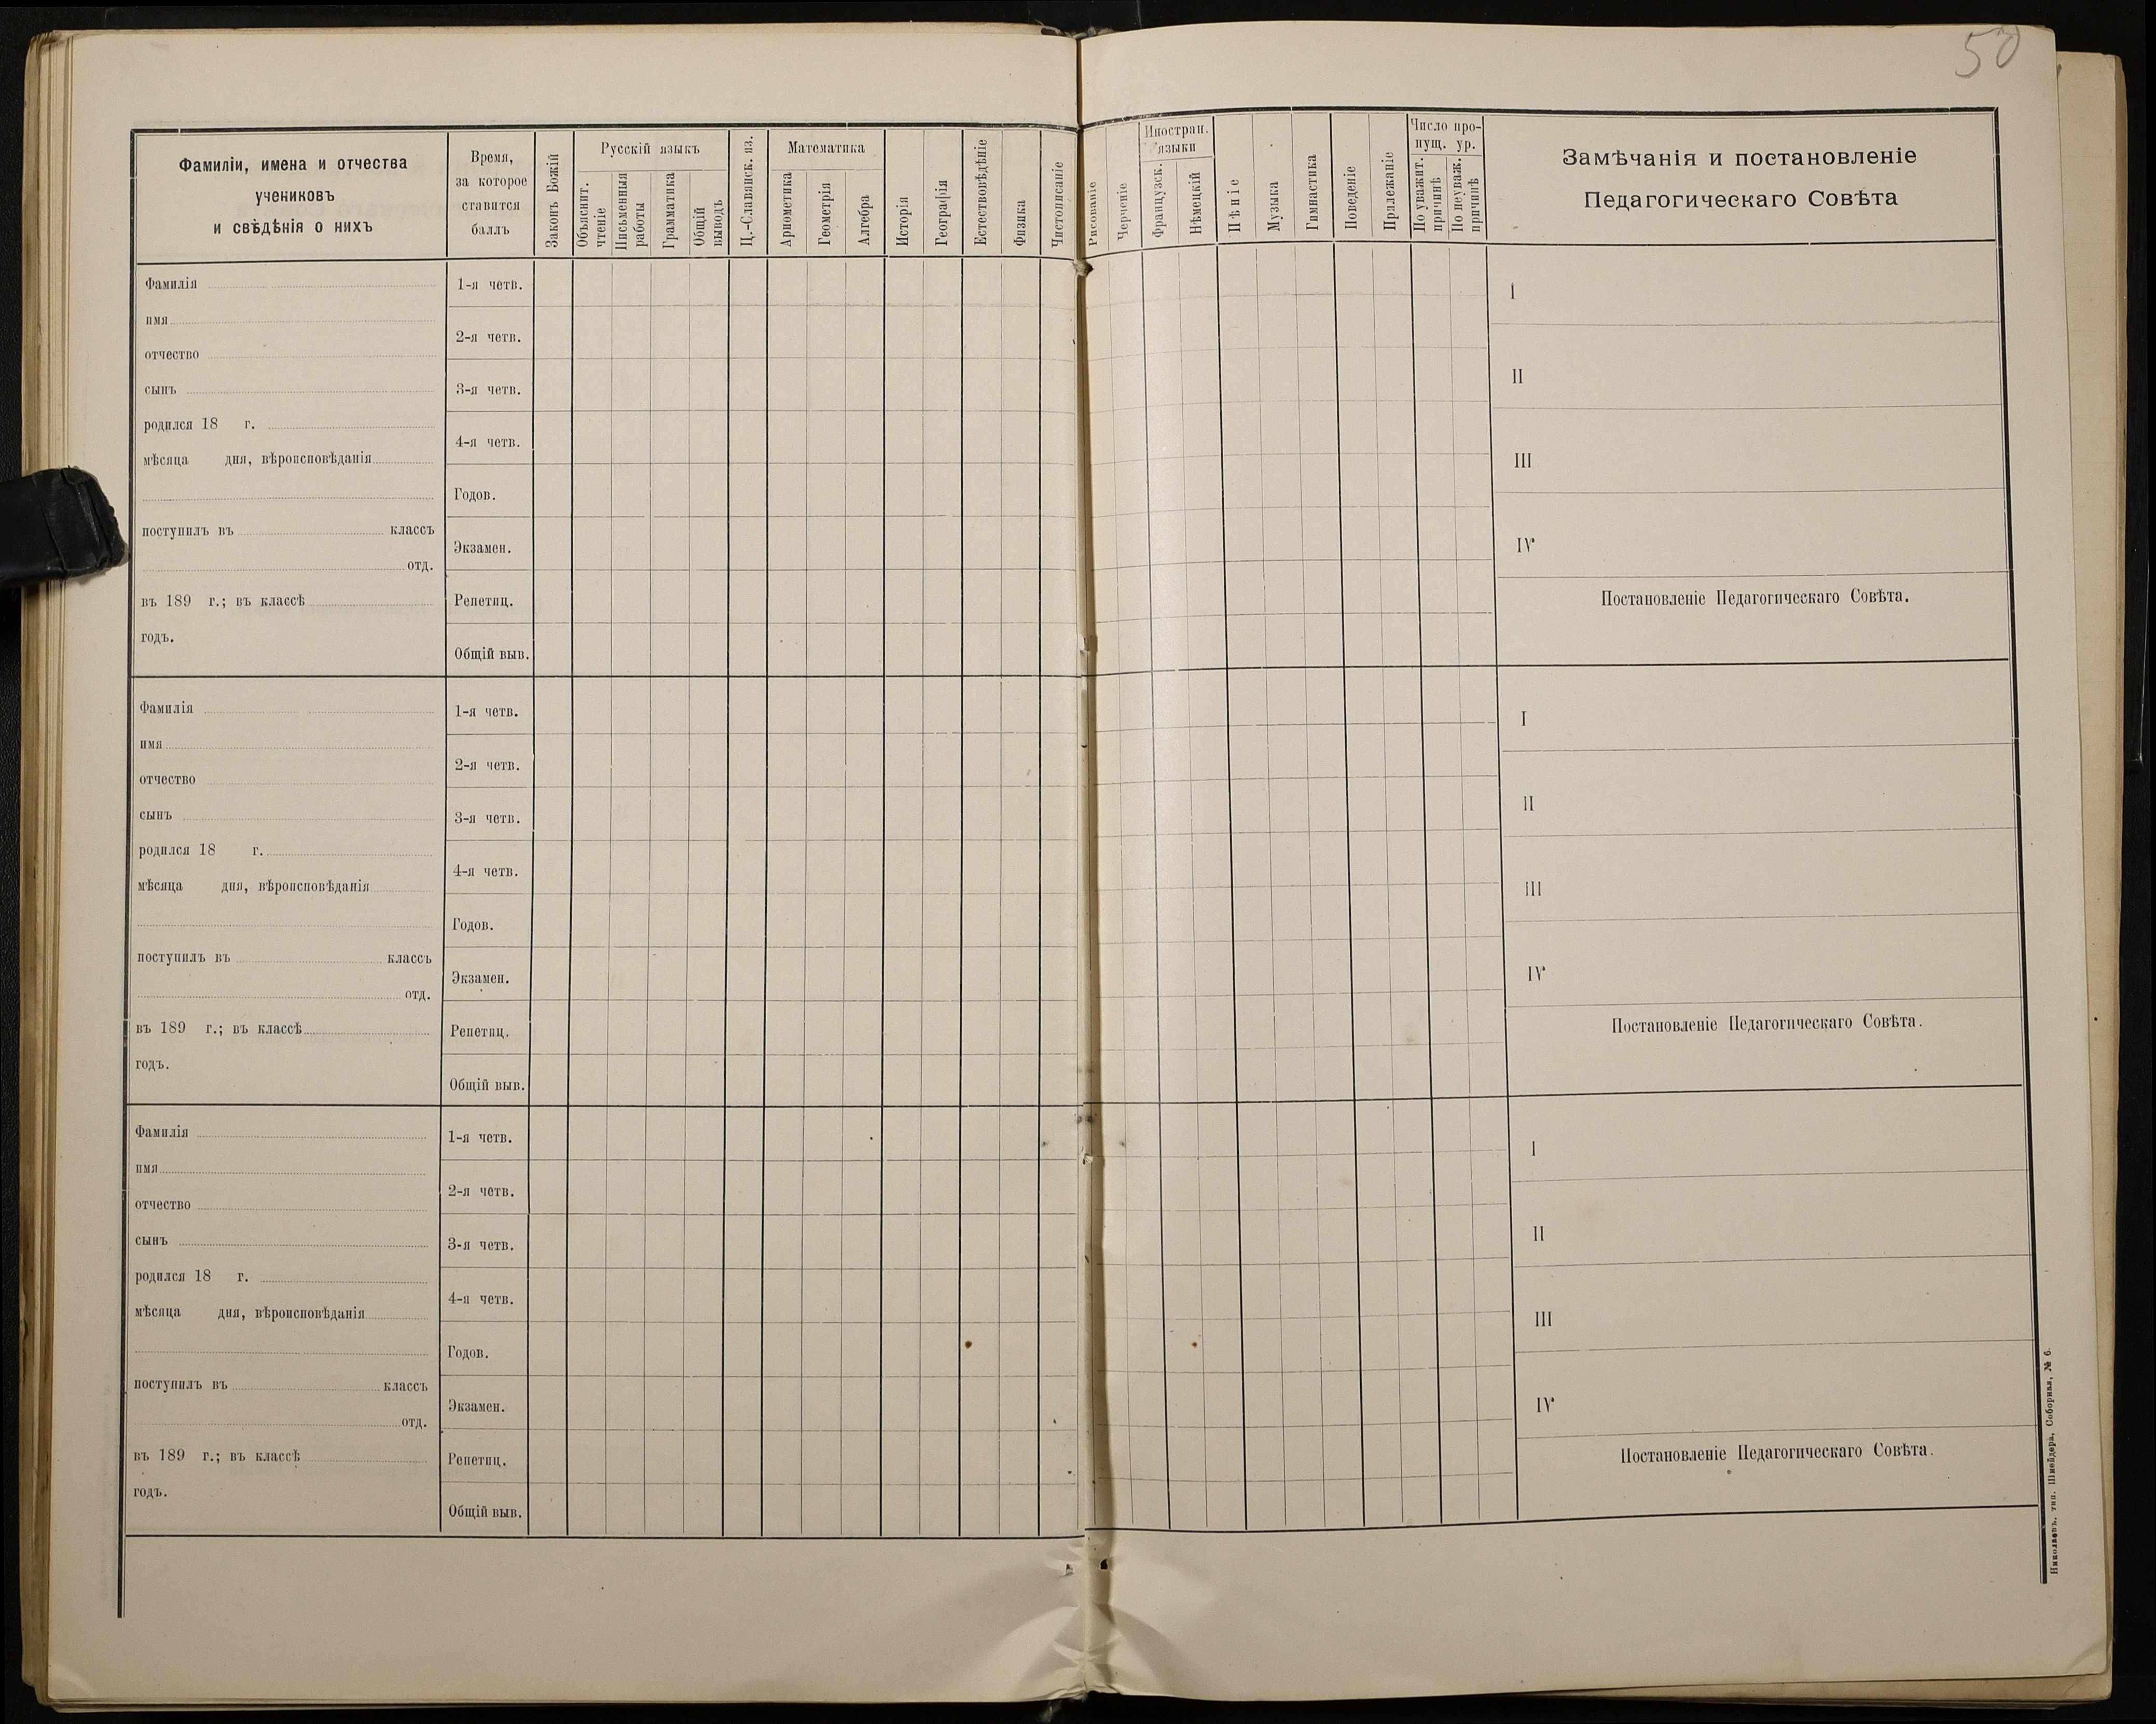 50
Фамиліи, имена и отчества
учениковъ
и свѣдѣнія о нихъ
Время,
за которое
ставится
баллъ
Законъ Божій
Русскій языкъ
Объяснит.
чтеніе
Письменныя
работы
Грамматика
Общій
выводъ
Ц.-Славянск. яз.
Математика
Ариѳметика
Геометрія
Алгебра
Исторія
Географія
Естествовѣдѣніе
Физика
Чистописаніе
Рисованіе
Черченіе
Иностран.
языки
Французск.
Нѣмецкій
Пѣніе
Музыка
Гимнастика
Поведеніе
Прилежаніе
Число про-
пущ. ур.
По уважит.
причинѣ
По неуваж.
причинѣ
Замѣчанія и постановленіе
Педагогическаго Совѣта
Фамилія
имя
отчество
сынъ
родился 18 г.
мѣсяца дня, вѣроисповѣданія
поступилъ въ классъ
отд.
въ 189 г.; въ классѣ
годъ.
1-я четв.
2-я четв.
3-я четв.
4-я четв.
Годов.
Экзамен.
Репетиц.
Общій выв.
I
II
III
IV
Постановленіе Педагогическаго Совѣта.
Фамилія
имя
отчество
сынъ
родился 18 г.
мѣсяца дня, вѣроисповѣданія
поступилъ въ классъ
отд.
въ 189 г.; въ классѣ
годъ.
1-я четв.
2-я четв.
3-я четв.
4-я четв.
Годов.
Экзамен.
Репетиц.
Общій выв.
I
II
III
IV
Постановленіе Педагогическаго Совѣта.
Фамилія
имя
отчество
сынъ
родился 18 г.
мѣсяца дня, вѣроисповѣданія
поступилъ въ классъ
отд.
въ 189 г.; въ классѣ
годъ.
1-я четв.
2-я четв.
3-я четв.
4-я четв.
Годов.
Экзамен.
Репетиц.
Общій выв.
I
II
III
IV
Постановленіе Педагогическаго Совѣта.
Николаевъ. тип. Шнейдера, Соборная, № 6.